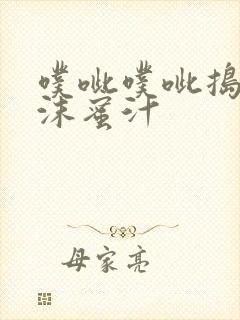 噗呲噗呲搗
沫蜜汁
母家亮